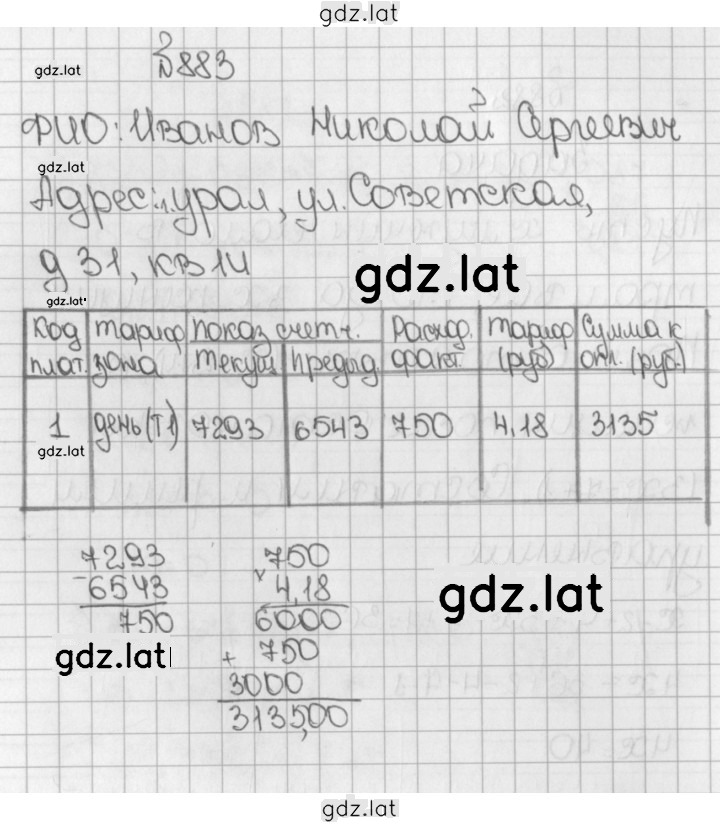 gdz.lat
№883
gdz.lat
ФИО: Иванов Николай Сергеевич
gdz.lat
Адрес: г. Урал, ул. Советская,
д 31, кв 14
gdz.lat
gdz.lat
Код плат. тариф зона показ счетч. Расход. факт. тариф (руб) Сумма к опл. (руб.)
текущ предыд.
1 день (Т1) 7293 6543 750 4,18 3135
gdz.lat
7293 750
- 6543 × 4,18
750 6000
+ 750
3000
3135,00
gdz.lat
gdz.lat
gdz.lat